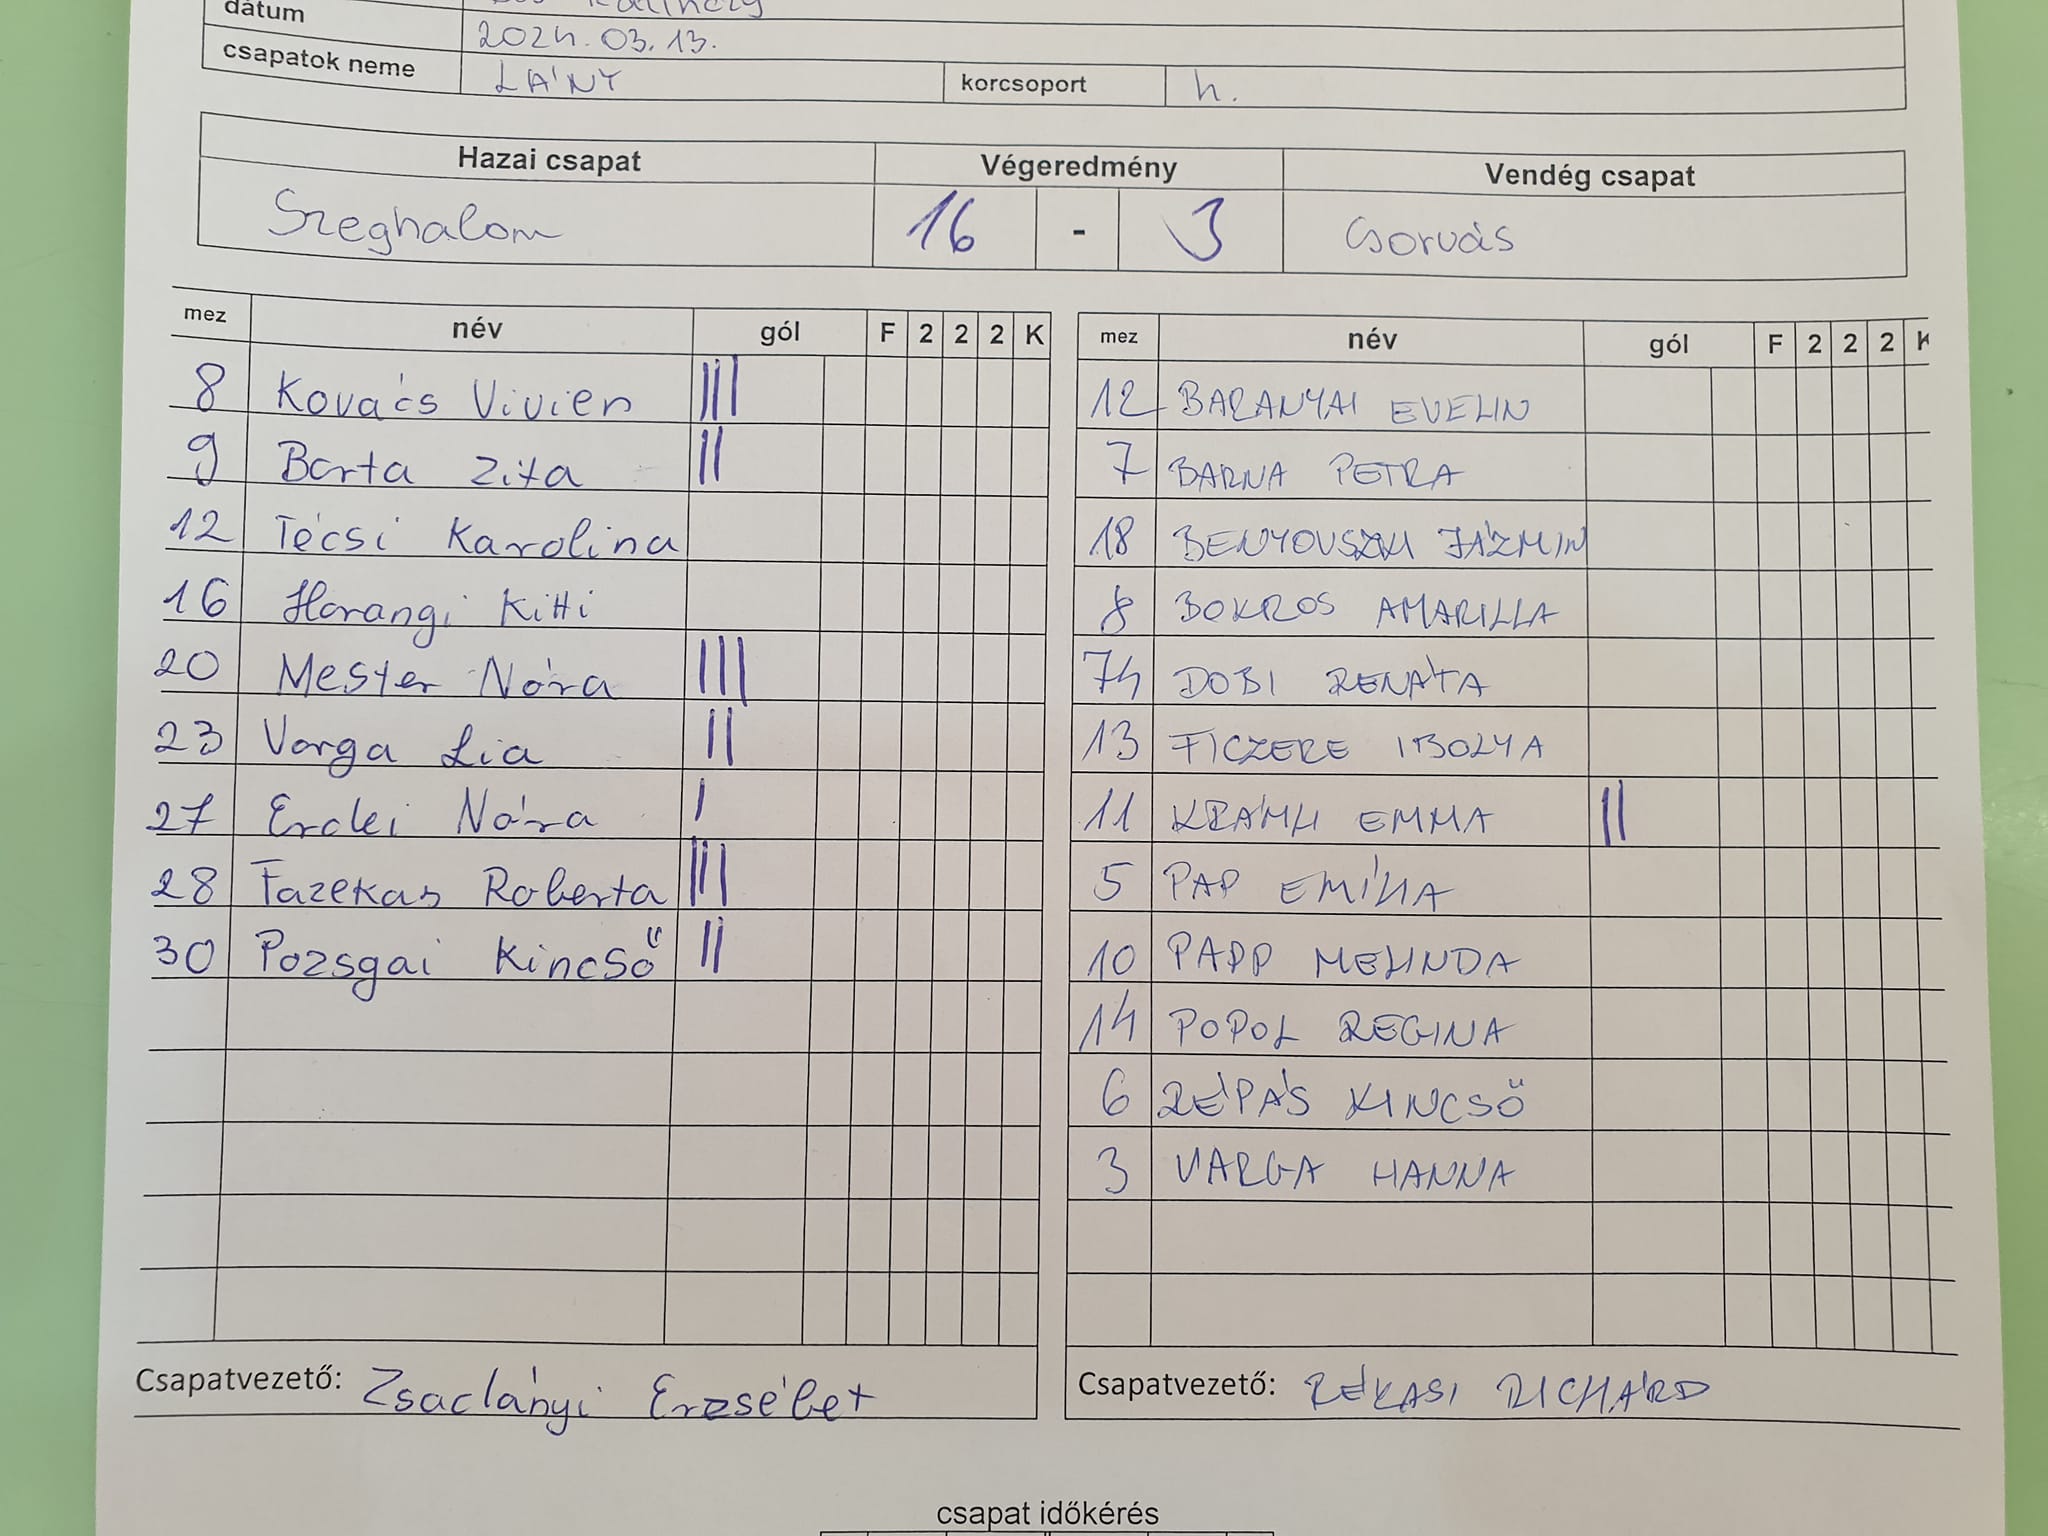 dátum
2024.03.13.
csapatok neme LÁNY korcsoport 4.
Hazai csapat Végeredmény Vendég csapat
Szeghalom 16 - 3 Csorvás
mez név gól F 2 2 2 K
8 Kovács Vivien III
9 Barta Zita II
12 Técsi Karolina
16 Harangi Kitti
20 Mester Nóra III
23 Varga Lia II
27 Erdei Nóra I
28 Fazekas Roberta III
30 Pozsgai Kincső II
Csapatvezető: Zsadányi Erzsébet
mez név gól F 2 2 2 K
12 BARANYAI EVELIN
7 BARNA PETRA
18 BENYOVSZKI JÁZMIN
8 BOKROS AMARILLA
74 DOBI RENÁTA
13 FICZERE IBOLYA
11 KRÁMLI EMMA II
5 PAP EMÍLIA
10 PAPP MELINDA
14 POPOL REGINA
6 RÉPÁS KINCSŐ
3 VARGA HANNA
Csapatvezető: RÉKASI RICHÁRD
csapat időkérés